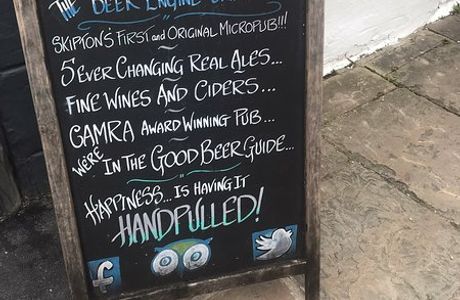 THE BEER ENGINE
SKIPTON'S FIRST and ORIGINAL MICROPUB!!!
5 EVER CHANGING REAL ALES...
FINE WINES AND CIDERS...
CAMRA AWARD WINNING PUB...
WE'RE IN THE GOOD BEER GUIDE...
HAPPINESS... IS HAVING IT
HANDPULLED!
f